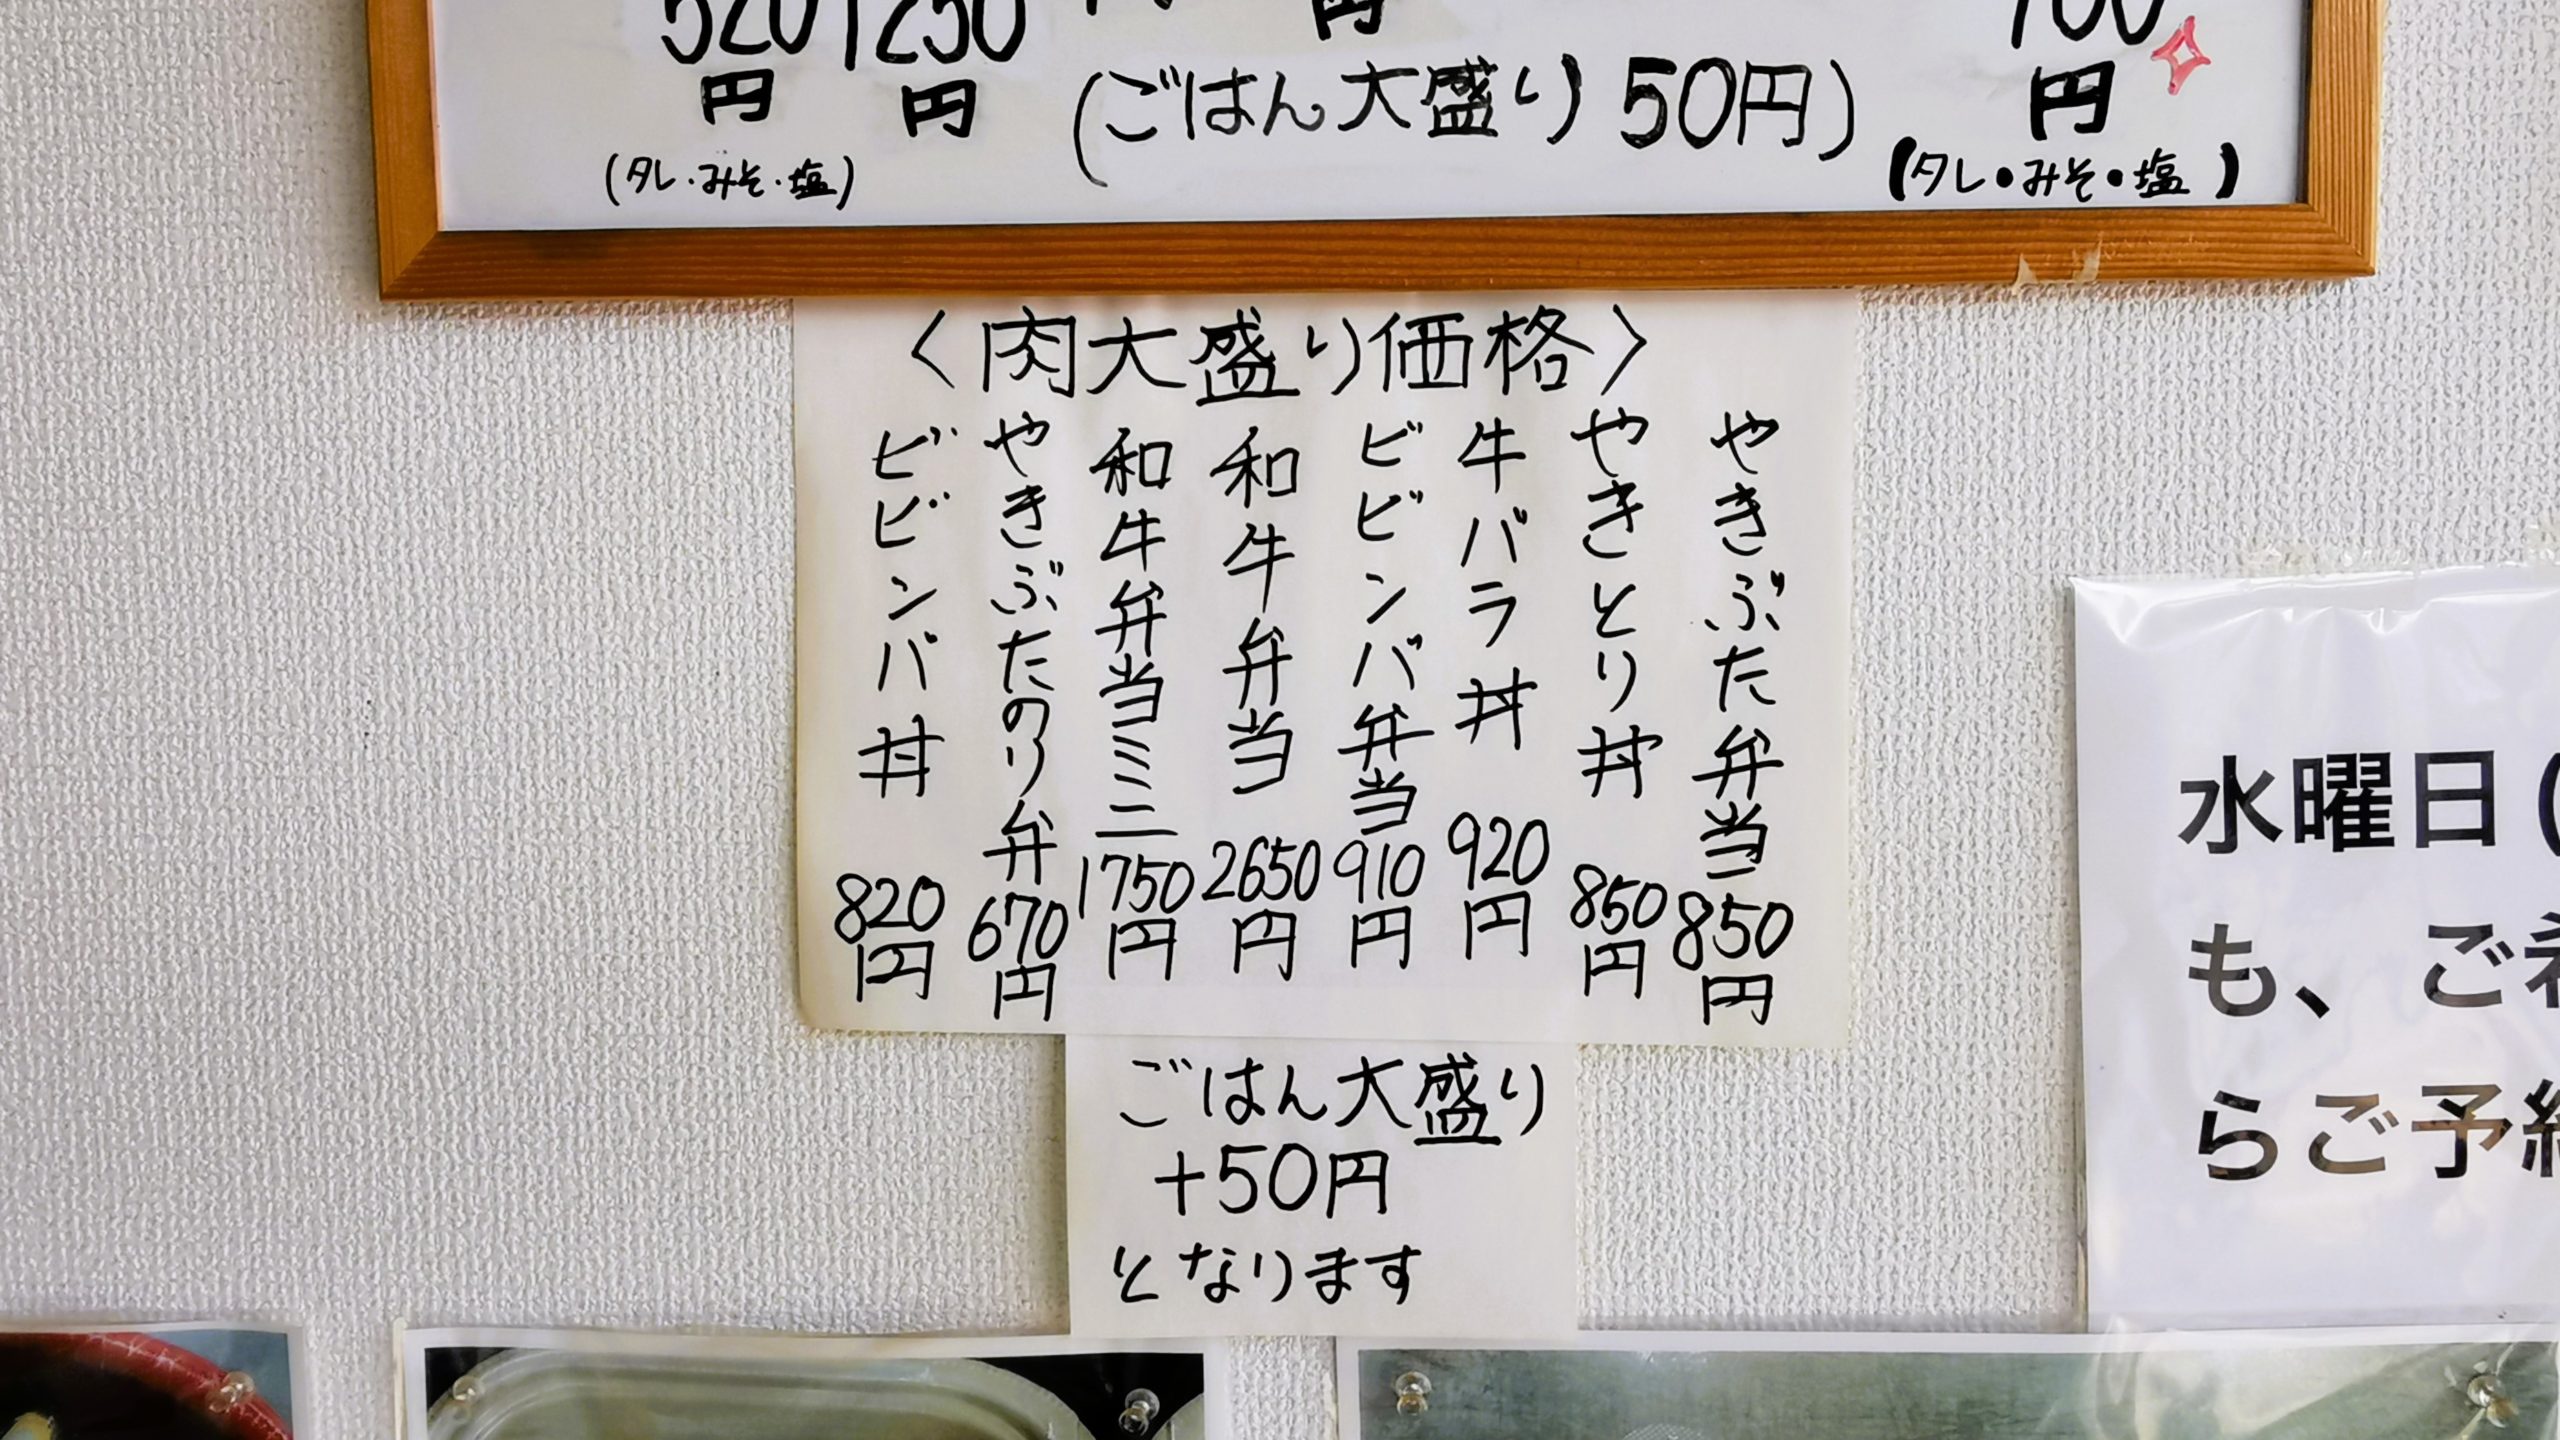 520円
1250円
円
(ごはん大盛り 50円)
円
(タレ・みそ・塩)
(タレ・みそ・塩)
〈肉大盛り価格〉
やきぶた弁当 850円
やきとり丼 850円
牛バラ丼 920円
ビビンバ弁当 910円
和牛弁当 2650円
和牛弁当ミニ 1750円
やきぶたのり弁 670円
ビビンバ丼 820円
ごはん大盛り
+50円
となります
水曜日(
も、ご
らご予